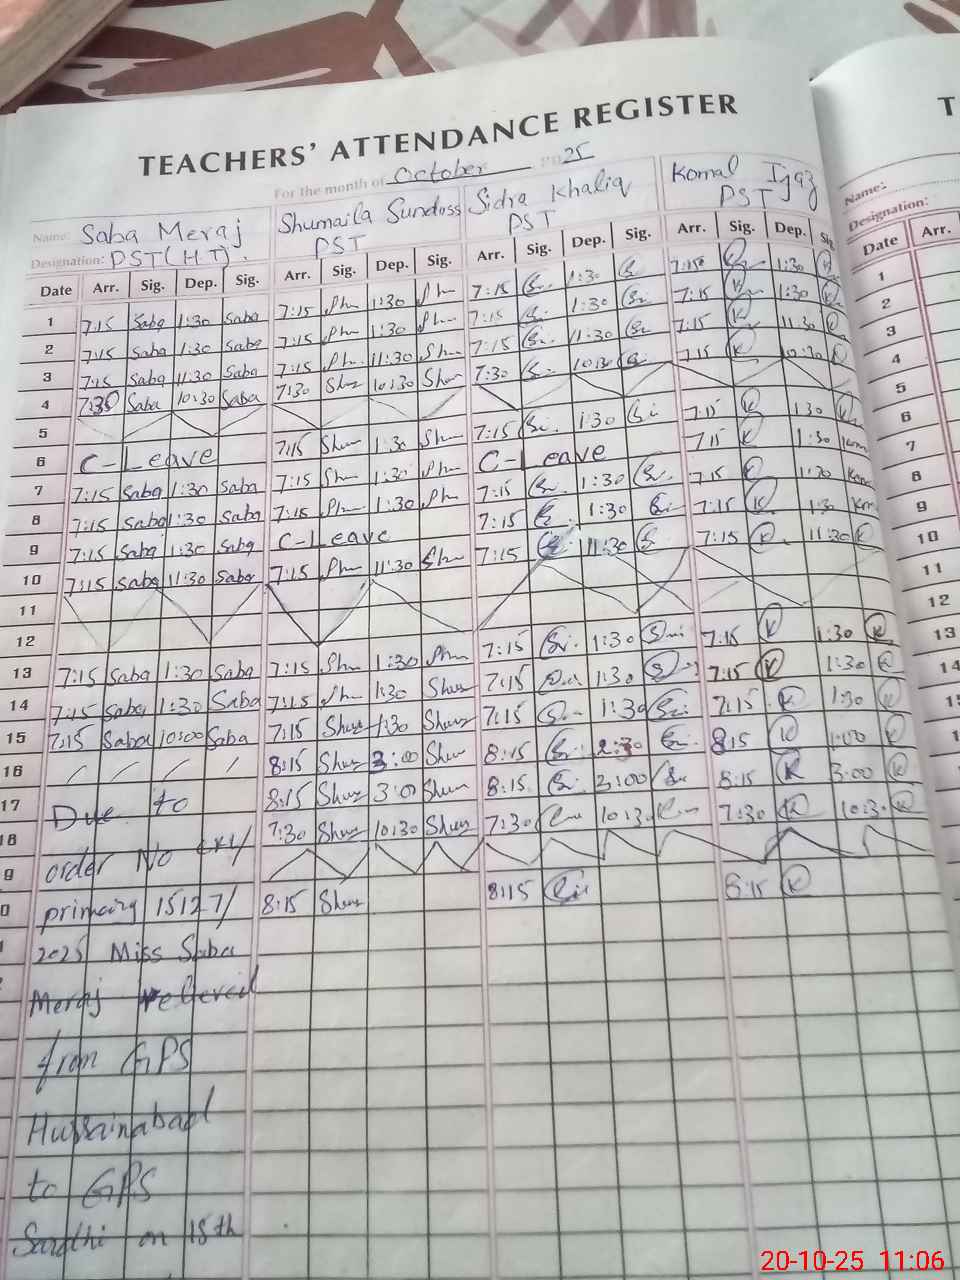 TEACHERS' ATTENDANCE REGISTER
For the month of October 2025
Name: Saba Meraj Shumaila Sundass Sidra Khaliq Komal Ijaz
Designation: PST (H.T). PST PST PST
Date Arr. Sig. Dep. Sig. Arr. Sig. Dep. Sig. Arr. Sig. Dep. Sig. Arr. Sig. Dep. Sig.
1 7:15 Saba 1:30 Saba 7:15 Shu 1:30 Shu 7:15 1:30 7:15 1:30
2 7:15 Saba 1:30 Saba 7:15 Shu 1:30 Shu 7:15 1:30 7:15 1:30
3 7:15 Saba 11:30 Saba 7:15 Shu 11:30 Shu 7:15 11:30 7:15 11:30
4 7:30 Saba 10:30 Saba 7:30 Shu 10:30 Shu 7:30 10:30 7:15 10:30
5
6 C-Leave 7:15 Shu 1:30 Shu 7:15 1:30 7:15 K 1:30 K
7 7:15 Saba 1:30 Saba 7:15 Shu 1:30 Shu C-Leave 7:15 K 1:30
8 7:15 Saba 1:30 Saba 7:15 Shu 1:30 Shu 7:15 1:30 7:15 K 1:30
9 7:15 Saba 1:30 Saba C-Leave 7:15 1:30 7:15 K 1:30
10 7:15 Saba 11:30 Saba 7:15 Shu 11:30 Shu 7:15 11:30 7:15 K 11:30 K
11
12
13 7:15 Saba 1:30 Saba 7:15 Shu 1:30 Shu 7:15 1:30 7:15 K 1:30 K
14 7:15 Saba 1:30 Saba 7:15 Shu 1:30 Shu 7:15 1:30 7:15 K 1:30 K
15 7:15 Saba 10:00 Saba 7:15 Shu 1:30 Shu 7:15 1:30 7:15 K 1:30 K
16 8:15 Shu 3:00 Shu 8:15 8:15 K K
17 Due to 8:15 Shu 3:00 Shu 8:15 3:00 8:15 K 3:00 K
18 order No 7:30 Shu 10:30 Shu 7:30 10:30 7:30 K 10:30 K
9
0 primary 15127/ 8:15 Shu 8:15 8:15 K
2025 Miss Saba
Meraj relieved
from GPS
Hussainabad
to GPS
on 15th
T
Name:
Designation:
Date Arr.
1
2
3
4
5
6
7
8
9
10
11
12
13
14
20-10-25 11:06